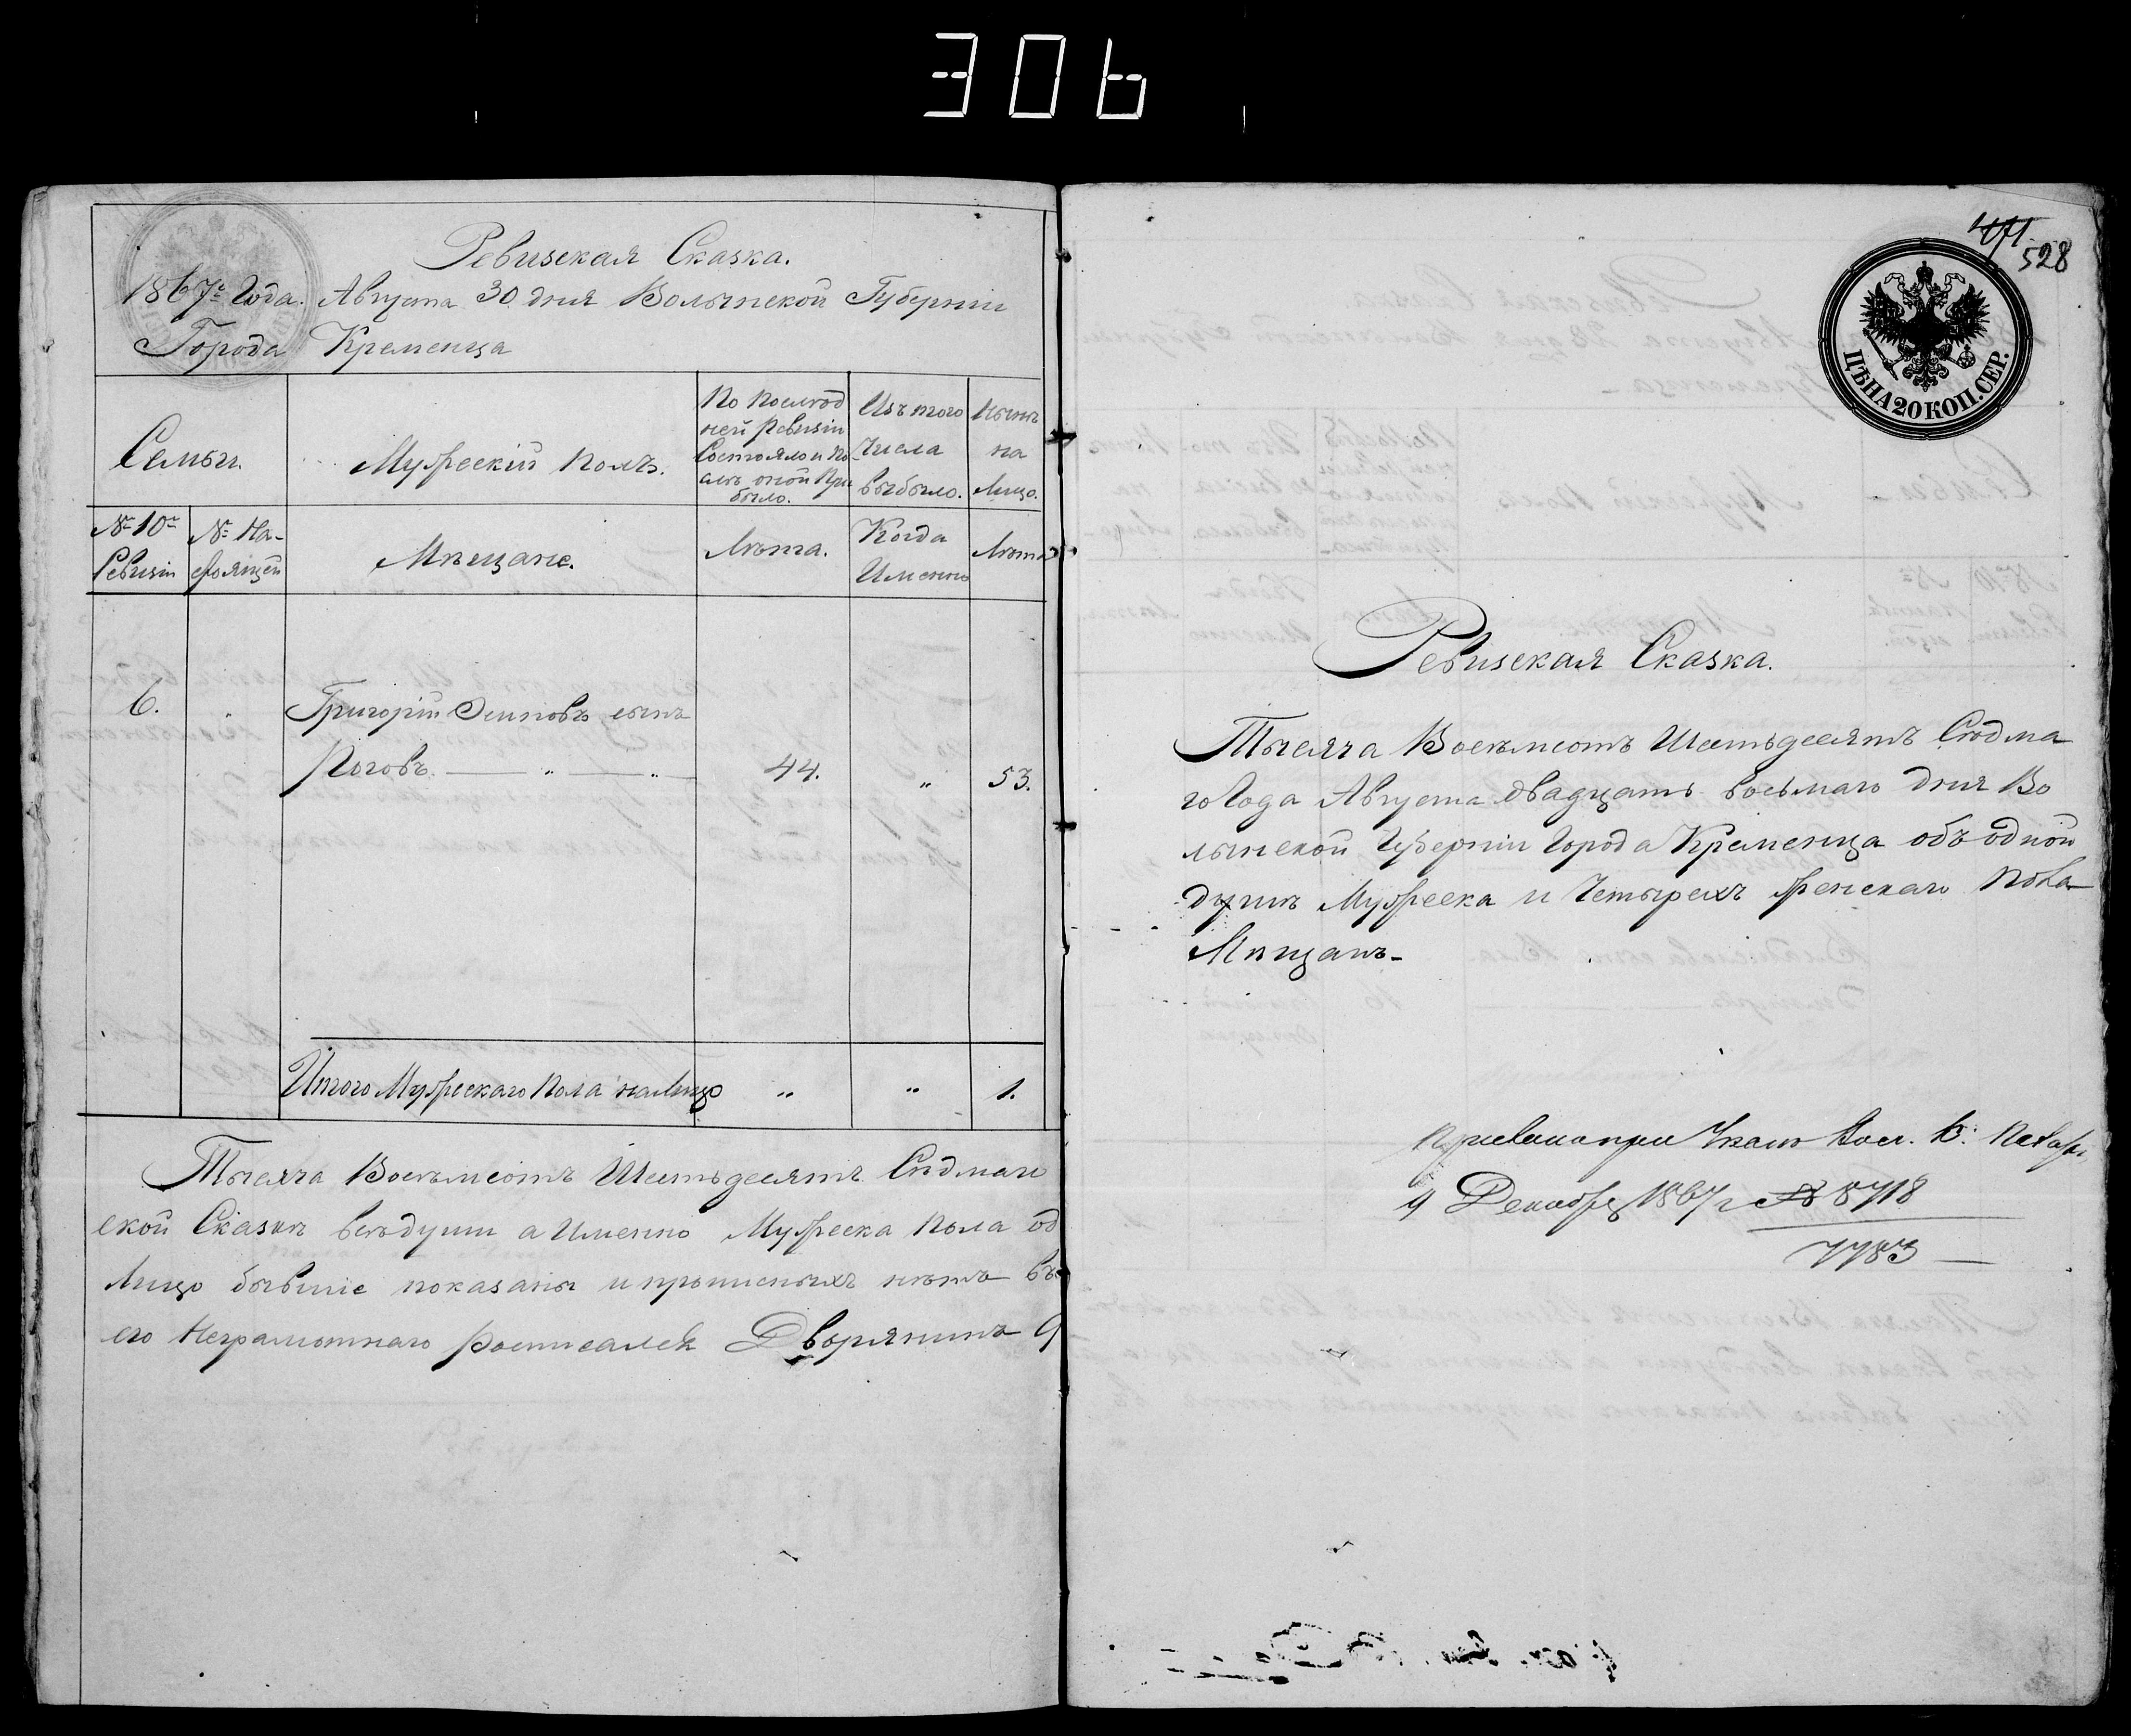 306
Ревизская Сказка.
1867го Года. Августа 30 дня Волынской Губерніи
Города Кременца
Семьи.
Мужескій полъ.
По послѣд
ней Ревизіи
Состояло и По
слѣ оной При
было.
Изъ того
Числа
выбыло.
Нынѣ
на
Лицо.
№ 10й
Ревизіи
№ На-
стоящей
Мѣщане.
Лѣта.
Когда
Именно
Лѣта
6.
Григорій Осиповъ сынъ
Роговъ.
44.
„
53.
Итого Мужескаго Пола налицо
„
„
1.
Тысяча Восемьсотъ Шестьдесятъ Седмаго
ской Сказкѣ всѣ души а Именно Мужеска пола од
Лицо бывшіе показаны и прописныхъ нѣтъ въ
его Неграмотнаго росписался Дворянинъ
471
528
ЦѢНА 20 КОП. СЕР.
Ревизская Сказка.
Тысяча Восемьсотъ Шестьдесятъ Седма
го Года Августа двадцать восьмаго дня Во
лынской Губерніи Города Кременца объ одной
душѣ Мужеска и Четырехъ женскаго пола
Мѣщанъ-
при
9 Декабря 1867 г № 8718
7783